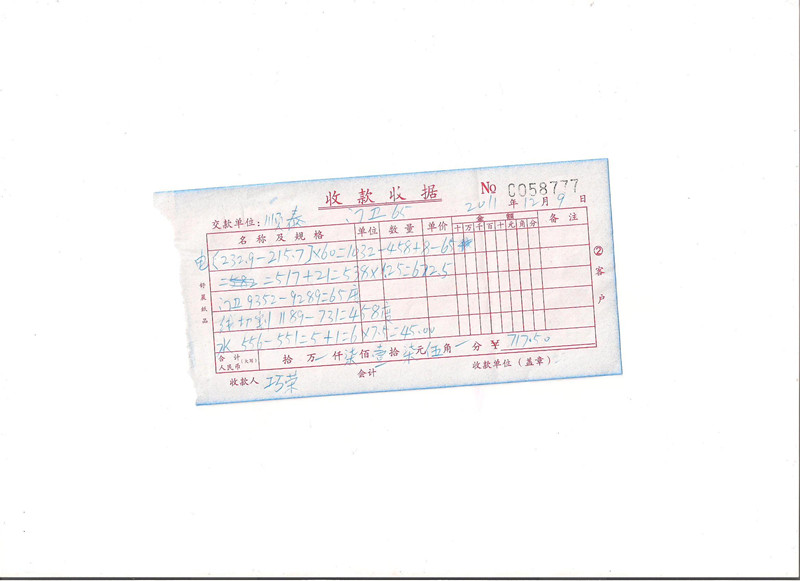 收款收据 No 0058777
交款单位：顺泰 门卫65 2011年12月9日
名称及规格 单位 数量 单价 金额 备注
十万千百十元角分
电 (232.9-215.7)×60=1032-458+8-65
=582=517+21=538×1.25=672.5
门卫9352-9289=65度
线切割11189-731=458度
水 556-551=5+1=6×7.5=45.00
合计人民币(大写) 拾 万 仟柒佰壹拾柒元伍角 分 ¥ 717.50
收款人 巧荣 会计 收款单位（盖章）
②客户